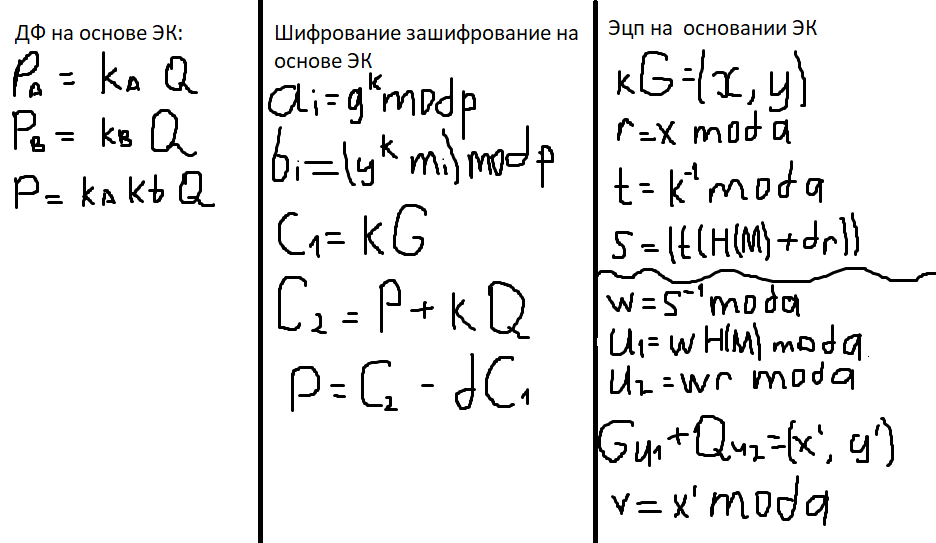 ДФ на основе ЭК:
P_A = k_A Q
P_B = k_B Q
P = k_A k_b Q
Шифрование зашифрование на
основе ЭК
a_i = g^k mod p
b_i = (y^k m_i) mod p
C_1 = kG
C_2 = P + k Q
P = C_2 - dC_1
Эцп на основании ЭК
kG = (x, y)
r = x mod q
t = k^-1 mod q
S = (t(H(M) + dr))
w = S^-1 mod q
u_1 = w H(M) mod q.
u_2 = wr mod q
Gu_1 + Qu_2 = (x', y')
v = x' mod q